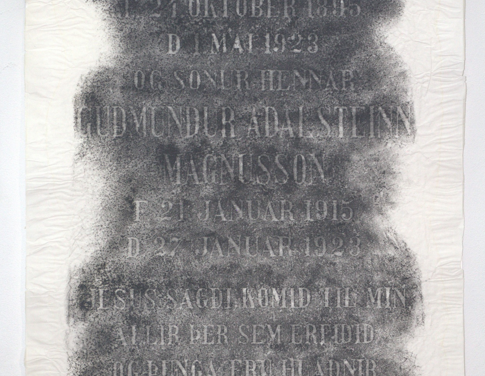 F. 24 OKTOBER 1895
D. 1 MAI 1923
OG SONUR HENNAR
GUDMUNDUR ADALSTEINN
MAGNUSSON
F. 21. JANUAR 1915
D. 27. JANUAR 1923
JESUS SAGDI, KOMID TIL MIN
ALLIR ÞER SEM ERFIDID
OG ÞUNGA ERU HLADNIR